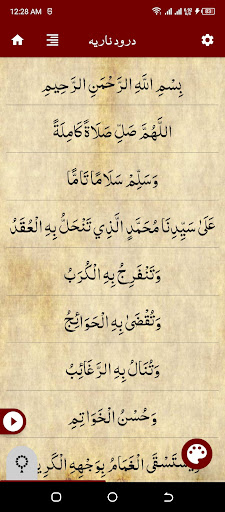 12:28 AM
درود ناریه
بِسْمِ اللَّهِ الرَّحْمَنِ الرَّحِيمِ
اللَّهُمَّ صَلِّ صَلَاةً كَامِلَةً
وَسَلِّمْ سَلَامًا تَامًّا
عَلَىٰ سَيِّدِنَا مُحَمَّدٍ الَّذِي تَنْحَلُّ بِهِ الْعُقَدُ
وَتَنْفَرِجُ بِهِ الْكُرَبُ
وَتُقْضَىٰ بِهِ الْحَوَائِجُ
وَتُنَالُ بِهِ الرَّغَائِبُ
وَحُسْنُ الْخَوَاتِمِ
وَيُسْتَسْقَى الْغَمَامُ بِوَجْهِهِ